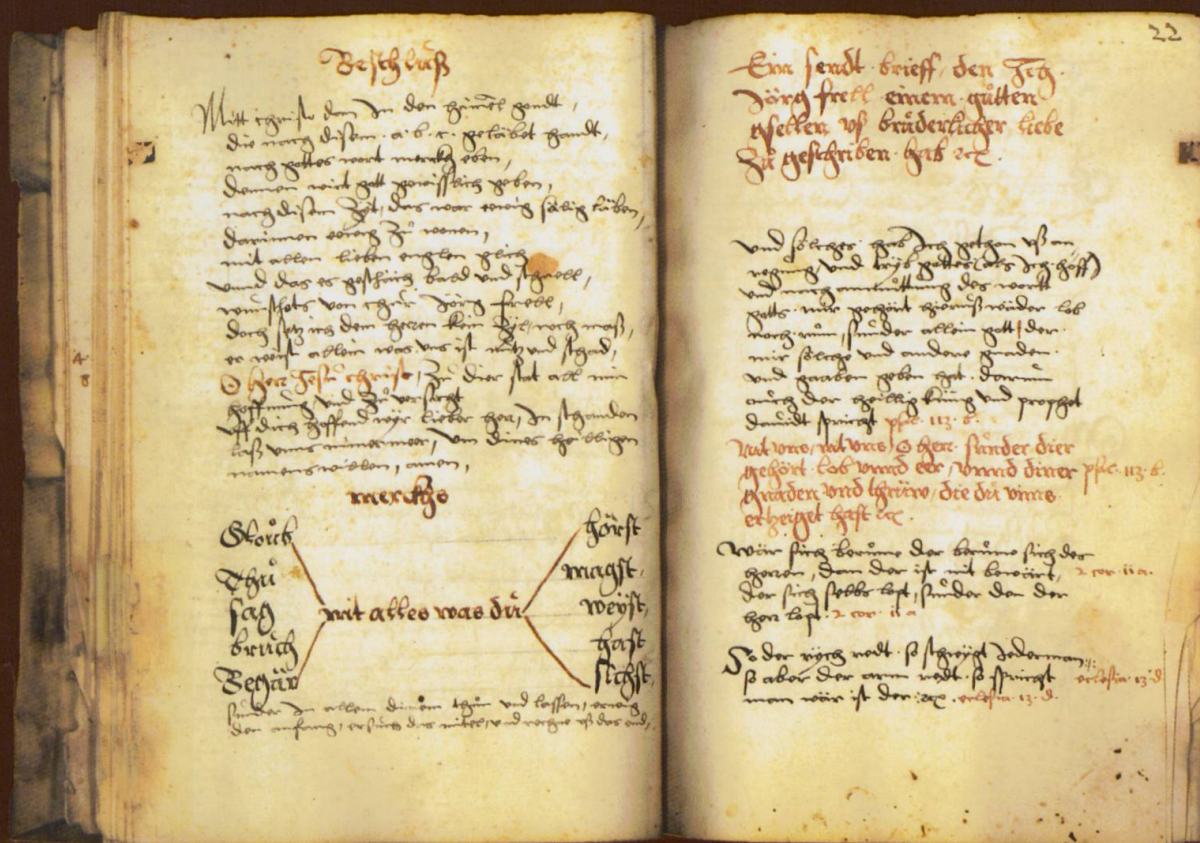 Beschluß
Mitt christo dem In den himel gendt,
die nach disem · a · b · c · geläbet handt,
nach gottes wort merckh eben,
denen wirt gott gwisslich geben,
nach disem Zyt, das war ewig sälig läben,
darinnen ewech Zů wonen,
mit allen lieben englen glich
vnnd das es geschäch bald und schnell,
wünschets von Jörg frell,
doch setz ich dem herren kein Zyl, noch maß,
er weist allein was vns ist nütz und schad,
O herr Jesu christ, Zů dier stat all min
hoffnung und Zůversicht
vff dich hoffend wyr lieber herr, In schanden
laß vnns nimermeer, vm dines heilligen
namens willen, amen,
merckhs
Gloub hörst
Thů magst,
sag nit alles was dů weyst,
bruch hast
Begär sichst,
sunder In allem dinem thůn und lassen, ewig
den anfang, ersuch das mitel, und rechne vß das end,
22
Ein sendt · brieff, den Ich
Jörg frell einem · gůtten
gsellen vß brůderlicher liebe
Zů geschriben · hab ꝛc.
und söliches · hab Ich gethan vß an
regung und tryb gottes (als Ich hoff)
und nach anmuttung des worts
gotts · mir gehört hierus wäder lob
noch · rům, sunder allein gott, der ·
mir söliche und andere gnaden ·
und gaaben geben hat · darum
auch der heillig küng und prophet
dauidt spricht psal · 113 · b ·
Nit vns, nit vns, O herr · sunder dier
gehört · lob vnnd eer, vnnd diner psal · 113 · b ·
gnaden vnd thrüw, die dů vnns
erzeiget hast ꝛc.
Wär sich berüme der berüme sich des
herren, dann der ist nit bewärt, 2 cor · 11 a ·
der sich selbs lopt, sunder den der
herr lopt · 2 cor · 11 a
So der rych redt · so schwygt Jederman
so aber der arm redt · so spricht eclesia · 13 · d
man wär ist der · ꝛc. · eclesia · 13 · d ·